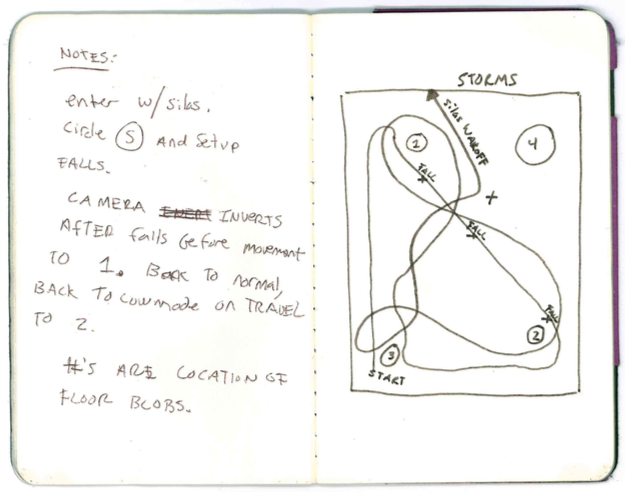 NOTES:
enter w/ silas.
Circle S AND Setup
FALLS.
CAMERA INVERTS
AFTER falls before movement
TO 1. BACK TO normal,
BACK TO cowmode on TRAVEL
TO 2.
#'S ARE LOCATION OF
FLOOR BLOBS.
STORMS
Silas WALKOFF
4
FALL
FALL
FALL
2
3
START